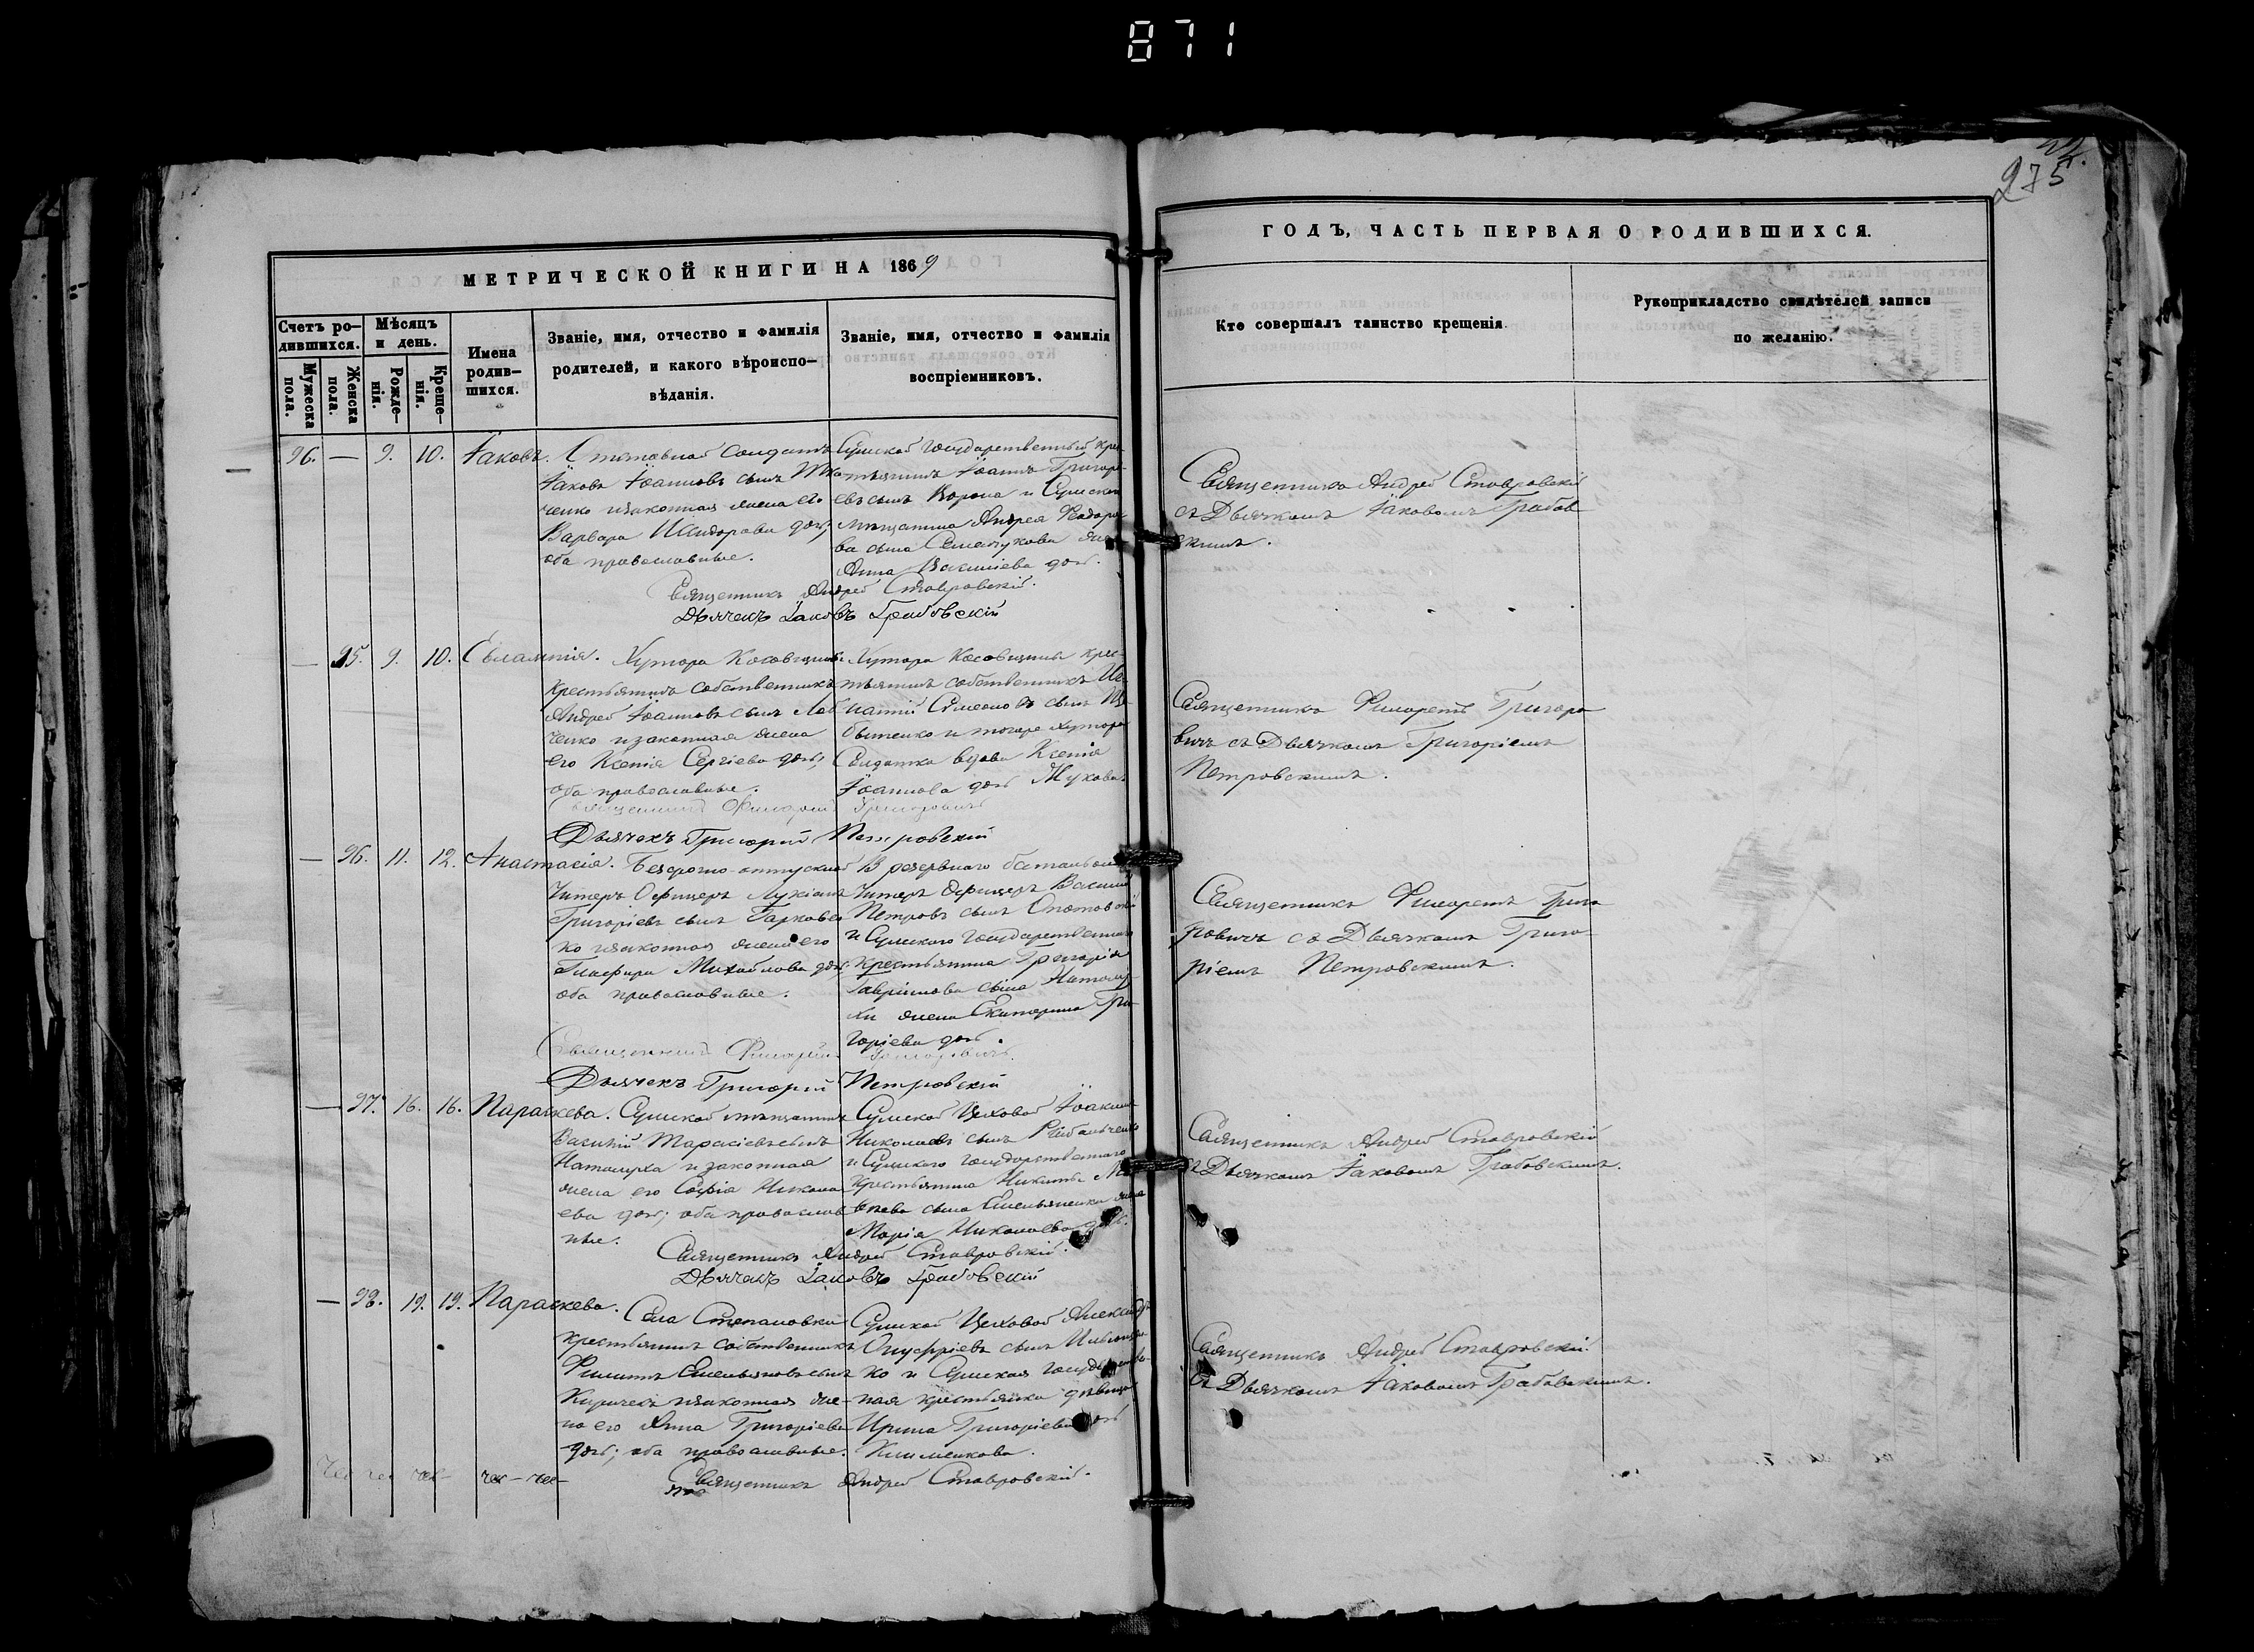 871
22.
275
МЕТРИЧЕСКОЙ КНИГИ НА 1869
Счетъ ро-
дившихся.
Мужеска
пола.
Женска
пола.
Мѣсяцъ
и день.
Рожде-
нія.
Креще-
нія.
Имена
родив-
шихся.
Званіе, имя, отчество и фамилія
родителей, и какого вѣроиспо-
вѣданія.
Званіе, имя, отчество и фамилія
воспріемниковъ.
96. — 9. 10. Іаковъ.
Солдатъ
Іаковъ Іоанновъ сынъ
ченко и законная жена его
Варвара Исидорова дочь,
оба православные.
Сумской государственный кре-
стьянинъ Іоаннъ Григорі-
евъ сынъ Ворона и Сумскаго
мѣщанина Андрея Ѳеодоро-
ва сына жена
Анна Василіева дочь.
Священникъ Андрей Ставровскій.
Дьячекъ Іаковъ Грабовскій
— 95. 9. 10. Евлампія.
Хутора Косовщины
крестьянинъ собственникъ
Андрей Іоанновъ сынъ
ченко и законная жена
его Ксенія Сергіева дочь,
оба православные.
Хутора Косовщины крес-
тьянинъ собственникъ Иг-
натій Симеоновъ сынъ
и тогоже хутора
Солдатка вдова Ксенія
Іоаннова дочь
Священникъ Филаретъ Григоровичъ
Дьячекъ Григорій Петровскій
— 96. 11. 12. Анастасія.
Безсрочно-отпускной
Унтеръ Офицеръ Лукіанъ
Григоріевъ сынъ
ко и законная жена его
Глафира Михайлова дочь
оба православные.
резервнаго баталіона
Унтеръ Офицеръ Василій
Петровъ сынъ
и Сумскаго государственнаго
крестьянина Григорія
Гавріилова сына
жена Екатерина Гри-
горіева дочь.
Священникъ Филаретъ Григоровичъ.
Дьячекъ Григорій Петровскій
— 97. 16. 16. Параскева.
Сумской мѣщанинъ
Василій Тарасіевъ сынъ
Наталуха и законная
жена его Софія Никола-
ева дочь; оба православ-
ные.
Сумской Цеховой Іоакимъ
Николаевъ сынъ Рыбальченко
и Сумскаго государственнаго
крестьянина Никиты
сына Емельяненка жена
Марія Николаева дочь.
Священникъ Андрей Ставровскій.
Дьячекъ Іаковъ Грабовскій
— 98. 19. 19. Параскева.
Села Степановки
крестьянинъ собственникъ
Филиппъ Емельяновъ сынъ
Киричекъ и законная же-
на его Анна Григоріева
дочь; оба православные.
Сумской Цеховой Александръ
Онуфріевъ сынъ
ко и Сумская государствен-
ная крестьянка дѣвица
Ирина Григоріева дочь
Клименкова.
Священникъ Андрей Ставровскій.
ГОДЪ, ЧАСТЬ ПЕРВАЯ О РОДИВШИХСЯ.
Кто совершалъ таинство крещенія.
Рукоприкладство свидѣтелей записи
по желанію.
Священникъ Андрей Ставровскій
съ Дьячкомъ Іаковомъ Грабов-
скимъ.
Священникъ Филаретъ Григоро-
вичъ съ Дьячкомъ Григоріемъ
Петровскимъ.
Священникъ Филаретъ Григо-
ровичъ съ Дьячкомъ Григо-
ріемъ Петровскимъ.
Священникъ Андрей Ставровскій
съ Дьячкомъ Іаковомъ Грабовскимъ.
Священникъ Андрей Ставровскій
съ Дьячкомъ Іаковомъ Грабовскимъ.